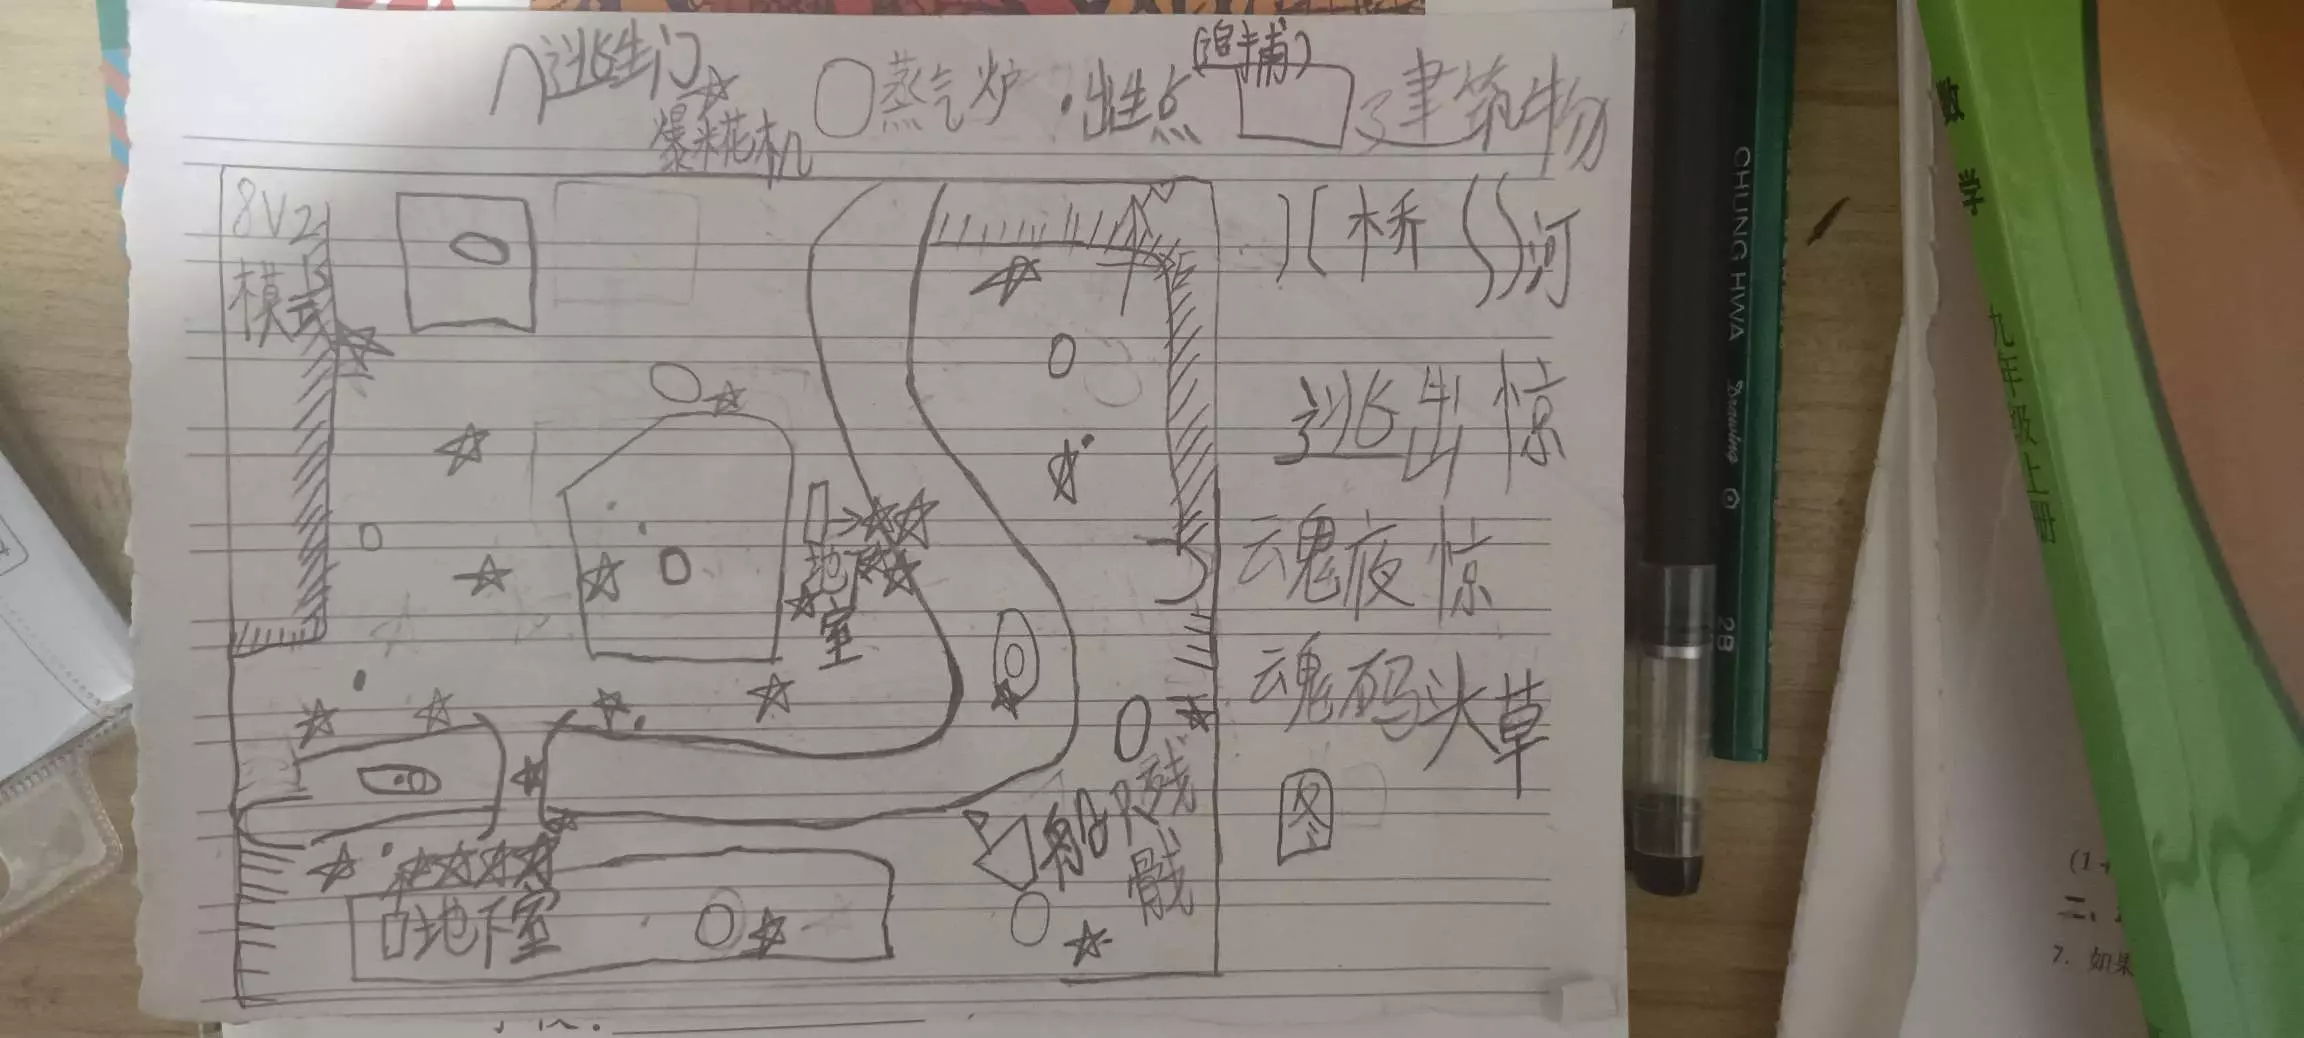 逃生门
☆爆米花机
蒸气炉
出生点
(追捕)
建筑物
8V2
模式
桥
河
逃出惊
魂夜惊
魂码头草
图
地下
室
船残
骸
地下室
CHUNG HWA Drawing 2B
数学
九年级上册
(1+
二、
7. 如果